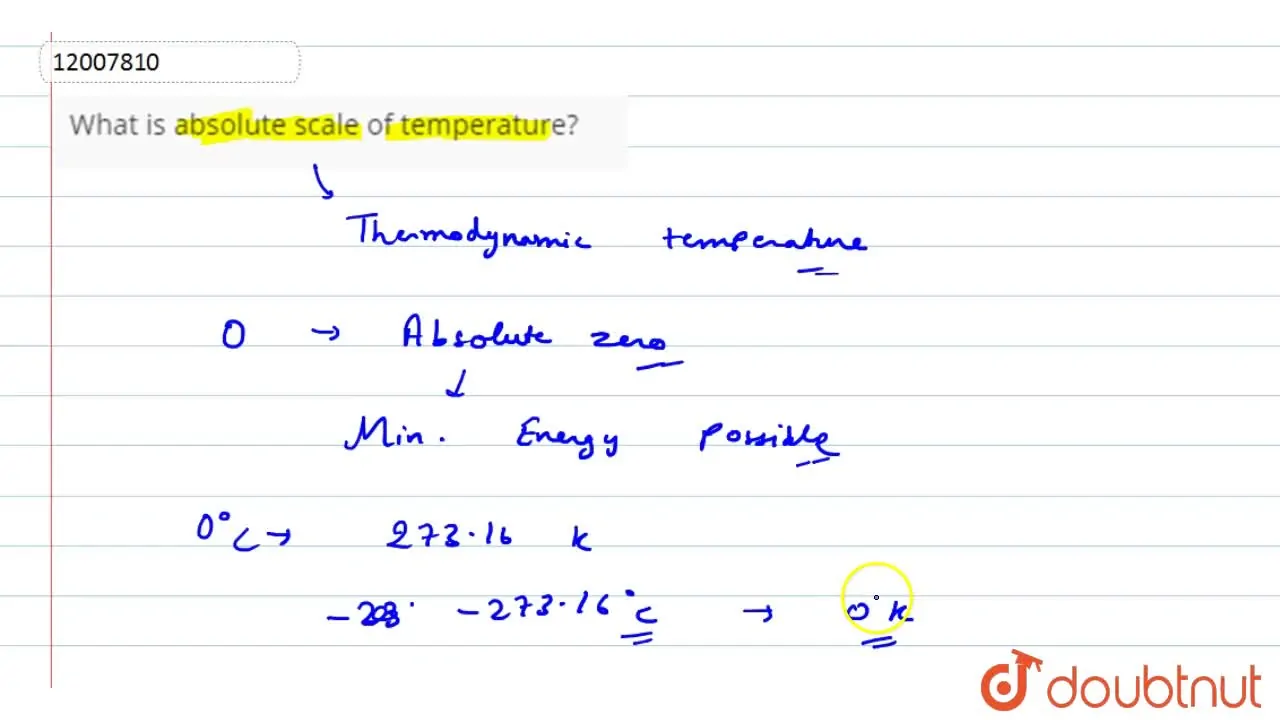 12007810
What is absolute scale of temperature?
Thermodynamic temperature
0 → Absolute zero
Min. Energy Possible
0°C → 273.16 K
-273.16°C → 0°K
doubtnut